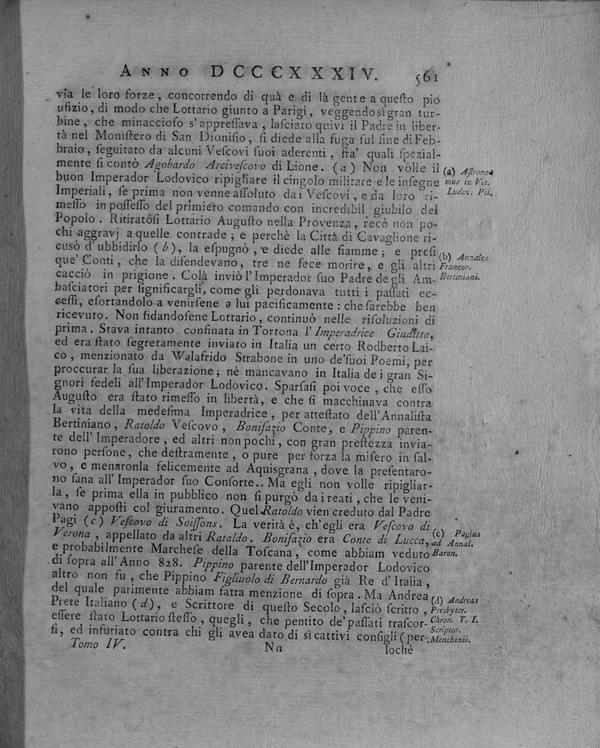 ANNO DCCCXXXIV. 561
via le loro forze, concorrendo di quà e di là gente a queſto pio
ufizio, di modo che Lottario giunto a Parigi, veggendo sì gran tur-
bine, che minaccioſo s'appreſſava, laſciato quivi il Padre in liber-
tà nel Moniſtero di San Dioniſio, ſi diede alla fuga ſul fine di Feb-
braio, ſeguitato da alcuni Veſcovi ſuoi aderenti, fra' quali ſpezial-
mente ſi contò Agobardo Arciveſcovo di Lione. (a) Non volle il
buon Imperador Lodovico ripigliare il cingolo militare e le inſegne
Imperiali, ſe prima non venne aſſoluto dai Veſcovi, e da loro ri-
meſſo in poſſeſſo del primiero comando con incredibil giubilo del
Popolo. Ritiratoſi Lottario Auguſto nella Provenza, recò non po-
chi aggravj a quelle contrade; e perchè la Città di Cavaglione ri-
cusò d'ubbidirlo (b), la eſpugnò, e diede alle fiamme; e preſi
que' Conti, che la difendevano, tre ne fece morire, e gli altri
cacciò in prigione. Colà inviò l'Imperador ſuo Padre degli Am-
baſciatori per ſignificargli, come gli perdonava tutti i paſſati ec-
ceſſi, eſortandolo a venirſene a lui pacificamente: che ſarebbe ben
ricevuto. Non fidandoſene Lottario, continuò nelle riſoluzioni di
prima. Stava intanto confinata in Tortona l'Imperadrice Giuditta,
ed era ſtato ſegretamente inviato in Italia un certo Rodberto Lai-
co, menzionato da Walafrido Strabone in uno de' ſuoi Poemi, per
proccurar la ſua liberazione; nè mancavano in Italia dei gran Si-
gnori fedeli all'Imperador Lodovico. Sparſaſi poi voce, che eſſo
Auguſto era ſtato rimeſſo in libertà, e che ſi macchinava contra
la vita della medeſima Imperadrice, per atteſtato dell'Annaliſta
Bertiniano, Ratoldo Veſcovo, Bonifazio Conte, e Pippino paren-
te dell'Imperadore, ed altri non pochi, con gran preſtezza invia-
rono perſone, che deſtramente, o pure per forza la miſero in ſal-
vo, e menaronla felicemente ad Aquisgrana, dove la preſentaro-
no ſana all'Imperador ſuo Conſorte. Ma egli non volle ripigliar-
la, ſe prima ella in pubblico non ſi purgò dai reati, che le veni-
vano appoſti col giuramento. Quel Ratoldo vien creduto dal Padre
Pagi (c) Veſcovo di Soiſſons. La verità è, ch'egli era Veſcovo di
Verona, appellato da altri Rataldo. Bonifazio era Conte di Lucca,
e probabilmente Marcheſe della Toſcana, come abbiam veduto
di ſopra all'Anno 828. Pippino parente dell'Imperador Lodovico
altro non fu, che Pippino Figliuolo di Bernardo già Re d'Italia,
del quale parimente abbiam fatta menzione di ſopra. Ma Andrea
Prete Italiano (d), e Scrittore di queſto Secolo, laſciò ſcritto,
eſſere ſtato Lottario ſteſſo, quegli, che pentito de' paſſati traſcor-
ſi, ed infuriato contra chi gli avea dato di sì cattivi conſigli (per-
Tomo IV. Nn lochè
(a) Aſtrono-
mus in Vit.
Ludov. Pii.
(b) Annales
Francor.
Bertiniani.
(c) Pagius
ad Annal.
Baron.
(d) Andreas
Presbyter.
Chron. T. I.
Scriptor.
Menchenii.